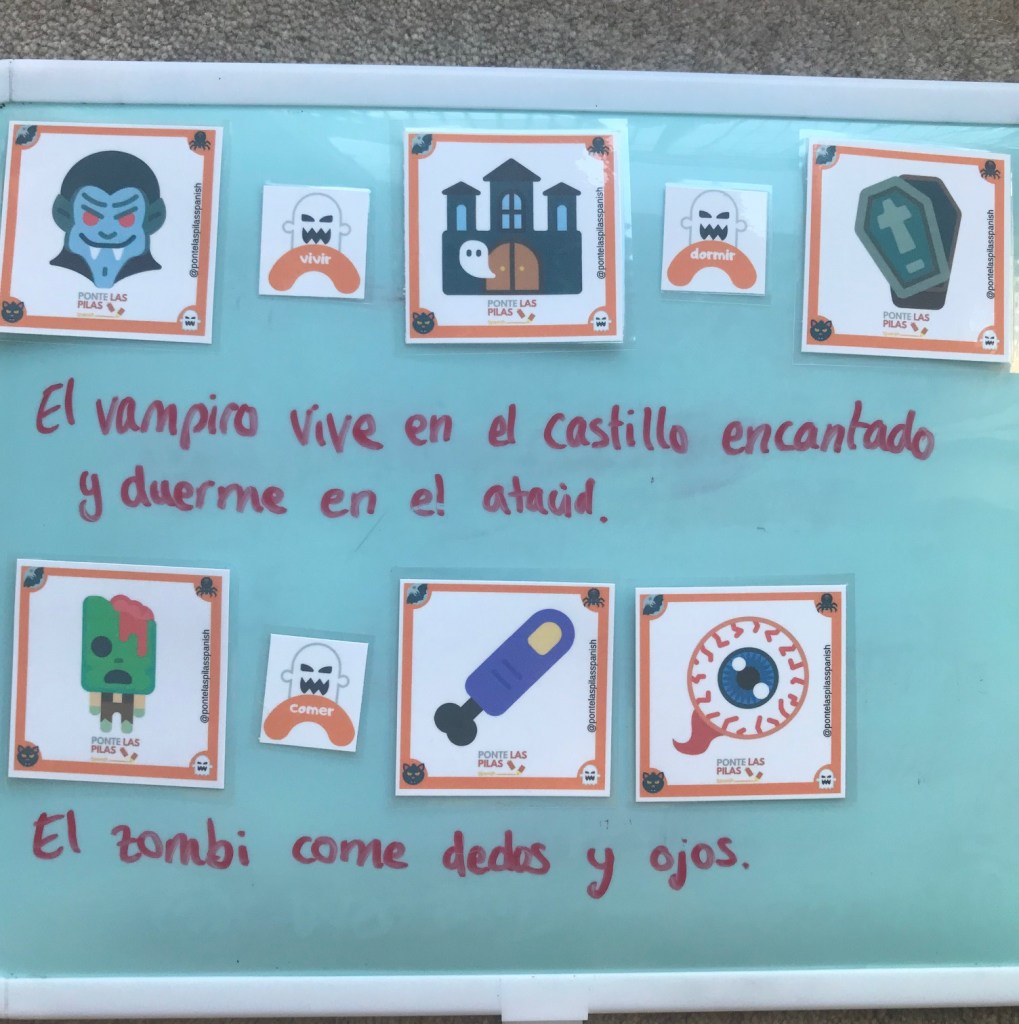 @pontelaspilasspanish
PONTE LAS
PILAS
vivir
@pontelaspilasspanish
PONTE LAS
PILAS
dormir
@pontelaspilasspanish
PONTE LAS
PILAS
El vampiro vive en el castillo encantado
y duerme en el ataúd.
@pontelaspilasspanish
PONTE LAS
PILAS
comer
@pontelaspilasspanish
PONTE LAS
PILAS
@pontelaspilasspanish
PONTE LAS
PILAS
El zombi come dedos y ojos.